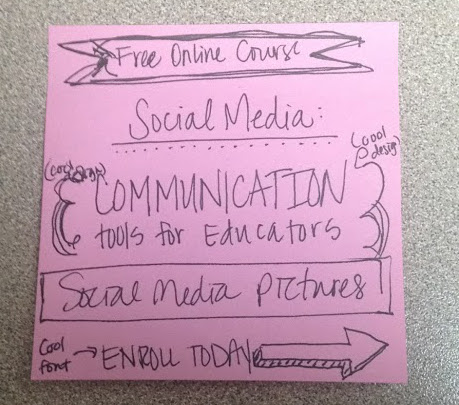 Free Online Course
Social Media:
(cool design)
(cool design)
COMMUNICATION
tools for Educators
Social Media Pictures
Cool font → ENROLL TODAY